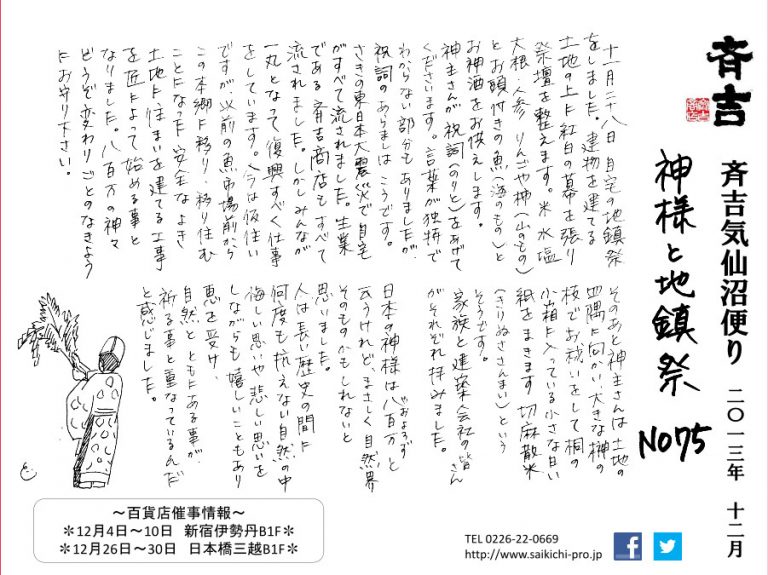 斉吉
斉吉気仙沼便り 二〇一三年 十二月
神様と地鎮祭 No75
十一月二十八日 自宅の地鎮祭
をしました。建物を建てる
土地の上に紅白の幕を張り
祭壇を整えます。米 水 塩
大根 人参 りんごや柿(山のもの)
とお頭付きの魚(海のもの)と
お神酒をお供えします。
神主さんが祝詞(のりと)をあげて
くださいます。言葉が独特で
わからない部分もありましたが、
祝詞のあらましはこうです。
さきの東日本大震災で自宅
がすべて流されました。生業
である斉吉商店もすべて
流されました。しかしみんなが
一丸となって復興すべく仕事
をしています。今は仮住い
ですが、以前の魚市場前から
この本郷に移り移り住む
ことになった 安全なよき
土地に住まいを建てる工事
を匠によって始める事と
なりました。八百万の神々
どうぞ変わりごとのなきよう
にお守り下さい。
そのあと神主さんは土地の
四隅に向かい大きな榊の
枝でお祓いをして桐の
小箱に入っている小さな白い
紙をまきます 切麻散米
(きりぬささんまい)という
そうです。
家族と建築会社の皆さん
がそれぞれ拝みました。
日本の神様は八百万と
やおよろず
云うけれど、まさしく自然界
そのものかもしれないと
思いました。
人は長い歴史の間に
何度も抗えない自然の中
悔しい思いや悲しい思いを
しながらも嬉しいこともあり
恵を受け、
自然とともにある事が、
祈る事と重なっているんだ
と感じました。
～百貨店催事情報～
＊12月4日～10日 新宿伊勢丹B1F＊
＊12月26日～30日 日本橋三越B1F＊
TEL 0226-22-0669
http://www.saikichi-pro.jp